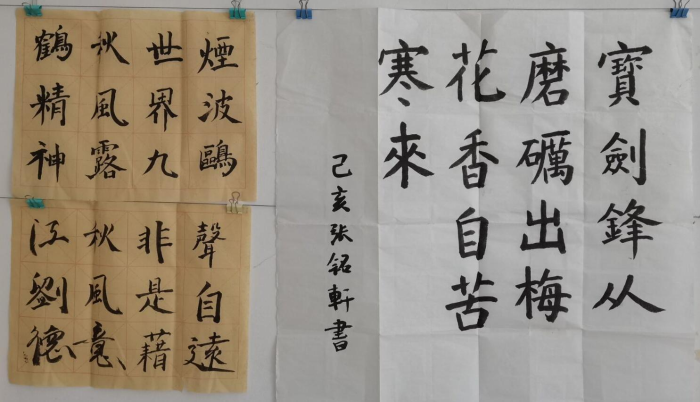 寶劍鋒从
磨礪出梅
花香自苦
寒來
己亥张铭軒書
煙波鷗
世界九
秋風露
鶴精神
聲自遠
非是藉
秋風意
江劉德